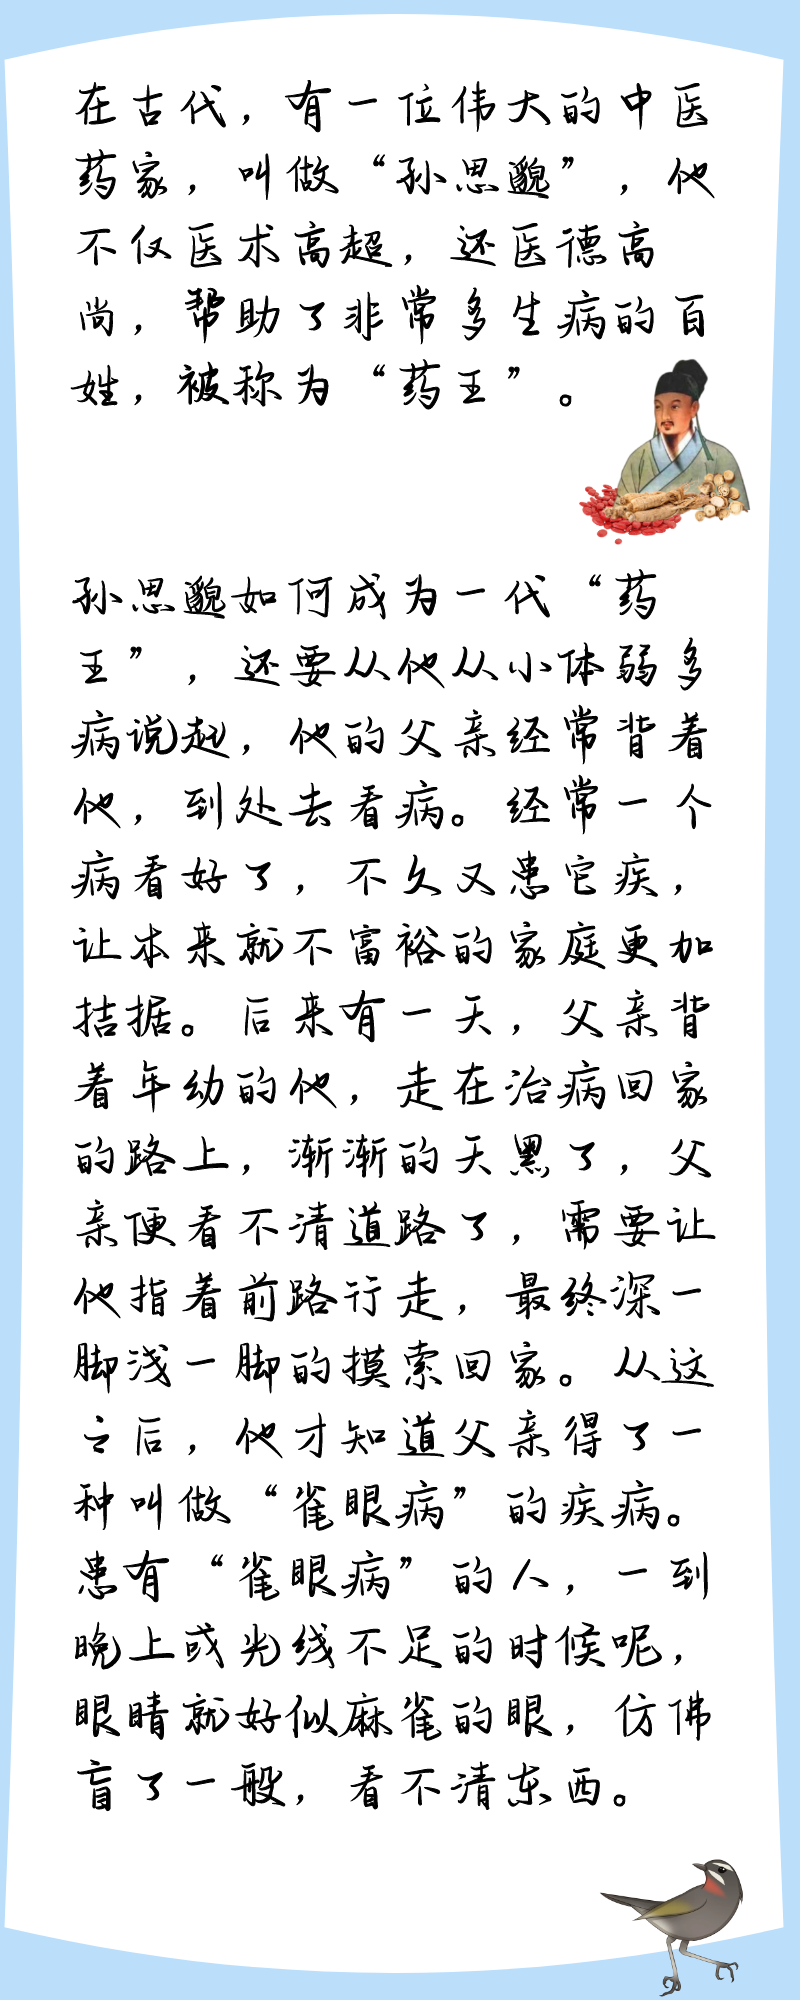 在古代，有一位伟大的中医
药家，叫做“孙思邈”，他
不仅医术高超，还医德高
尚，帮助了非常多生病的百
姓，被称为“药王”。
孙思邈如何成为一代“药
王”，还要从他从小体弱多
病说起，他的父亲经常背着
他，到处去看病。经常一个
病看好了，不久又患它疾，
让本来就不富裕的家庭更加
拮据。后来有一天，父亲背
着年幼的他，走在治病回家
的路上，渐渐的天黑了，父
亲便看不清道路了，需要让
他指着前路行走，最终深一
脚浅一脚的摸索回家。从这
之后，他才知道父亲得了一
种叫做“雀眼病”的疾病。
患有“雀眼病”的人，一到
晚上或光线不足的时候呢，
眼睛就好似麻雀的眼，仿佛
盲了一般，看不清东西。